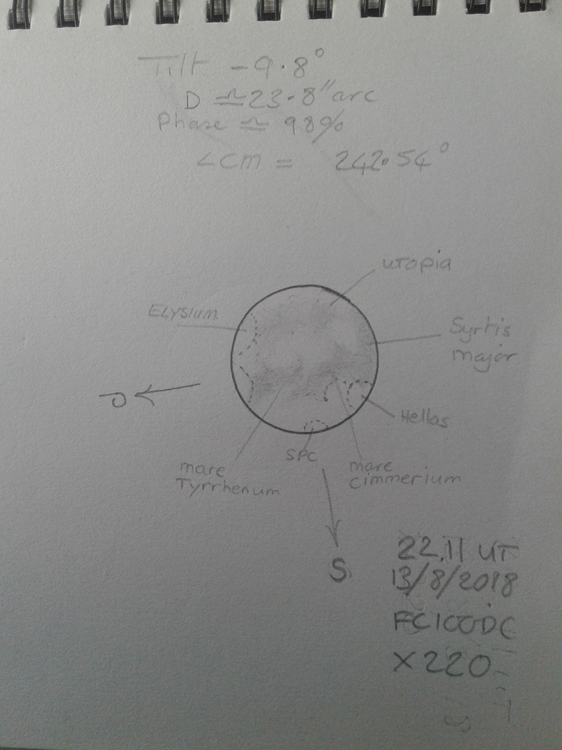 Tilt -9.8°
D ≏ 23.8" arc
Phase ≏ 98%
∠CM = 242.54°
utopia
Elysium
Syrtis
major
Hellas
SPC
mare
Tyrrhenum
mare
cimmerium
S
22.11 UT
13/8/2018
FC100DC
x220